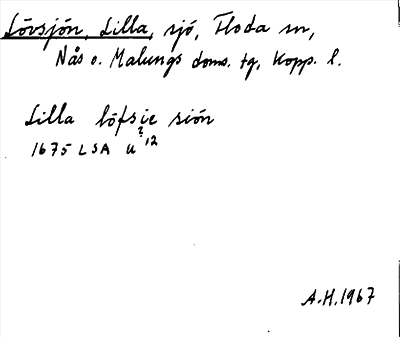 Lövsjön, Lilla, sjö, Floda sn,
Nås o. Malungs doms. tg, Kopp. l.
Lilla löfsie siön
?
1675 LSA U 12
A.H. 1967